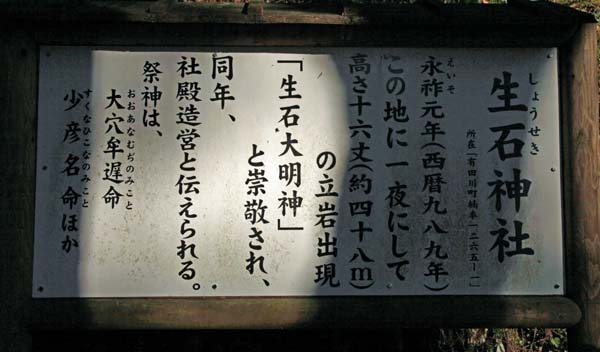 しょうせき
生石神社
所在「有田川町楠本一二六五ー一」
えいそ
永祚元年(西暦九八九年)
この地に一夜にして
高さ十六丈(約四十八m)
の立岩出現
「生石大明神」
と崇敬され、
同年、
社殿造営と伝えられる。
祭神は、
おおあなむぢのみこと
大穴牟遅命
すくなひこなのみこと
少彦名命ほか